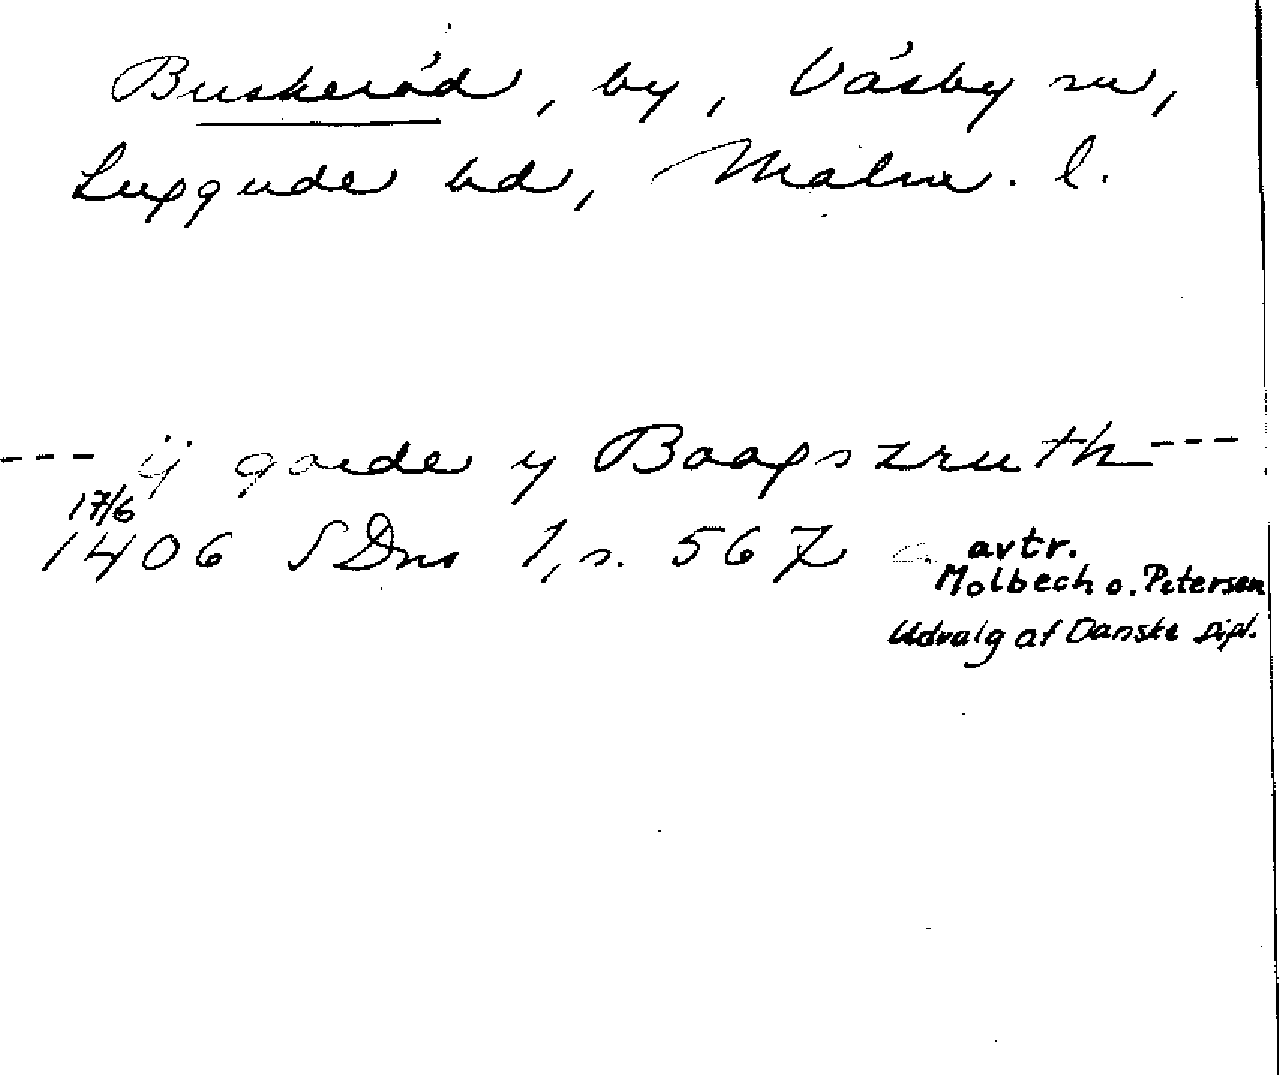 Buskeröd, by, Väsby sn,
Luggude hd, Malm. l.
--- ij garde y Baagszruth ---
17/6
1406 SDns 1, s. 567 avtr.
Molbech o. Petersen
Udvalg af Danske Dipl.